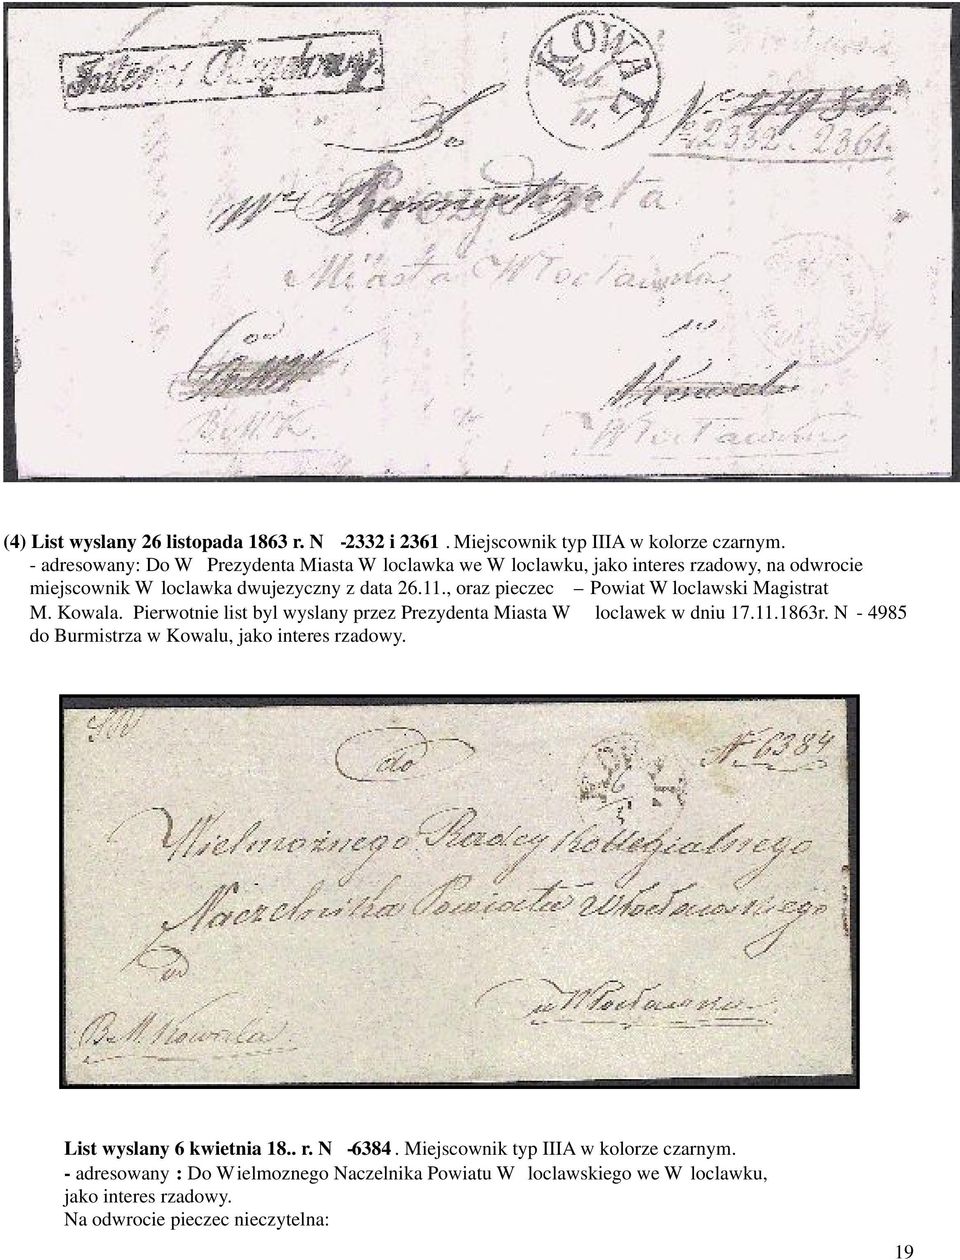 Interes Rządowy.
KOWAL
26
11.
Do
N 2332. 2361.
Prezydenta
Miasta Włocławka
od
we
B. M. K.
Włocławku
(4) List wyslany 26 listopada 1863 r. N -2332 i 2361. Miejscownik typ IIIA w kolorze czarnym.
- adresowany: Do W Prezydenta Miasta W loclawka we W loclawku, jako interes rzadowy, na odwrocie
miejscownik W loclawka dwujezyczny z data 26.11., oraz pieczec – Powiat W loclawski Magistrat
M. Kowala. Pierwotnie list byl wyslany przez Prezydenta Miasta W loclawek w dniu 17.11.1863r. N - 4985
do Burmistrza w Kowalu, jako interes rzadowy.
do
N 6384
6
Wielmożnego Radcy Kollegialnego
Naczelnika Powiatu Włocławskiego
od
w Włocławku
B. M. Kowala.
List wyslany 6 kwietnia 18.. r. N -6384. Miejscownik typ IIIA w kolorze czarnym.
- adresowany : Do Wielmoznego Naczelnika Powiatu W loclawskiego we W loclawku,
jako interes rzadowy.
Na odwrocie pieczec nieczytelna:
19